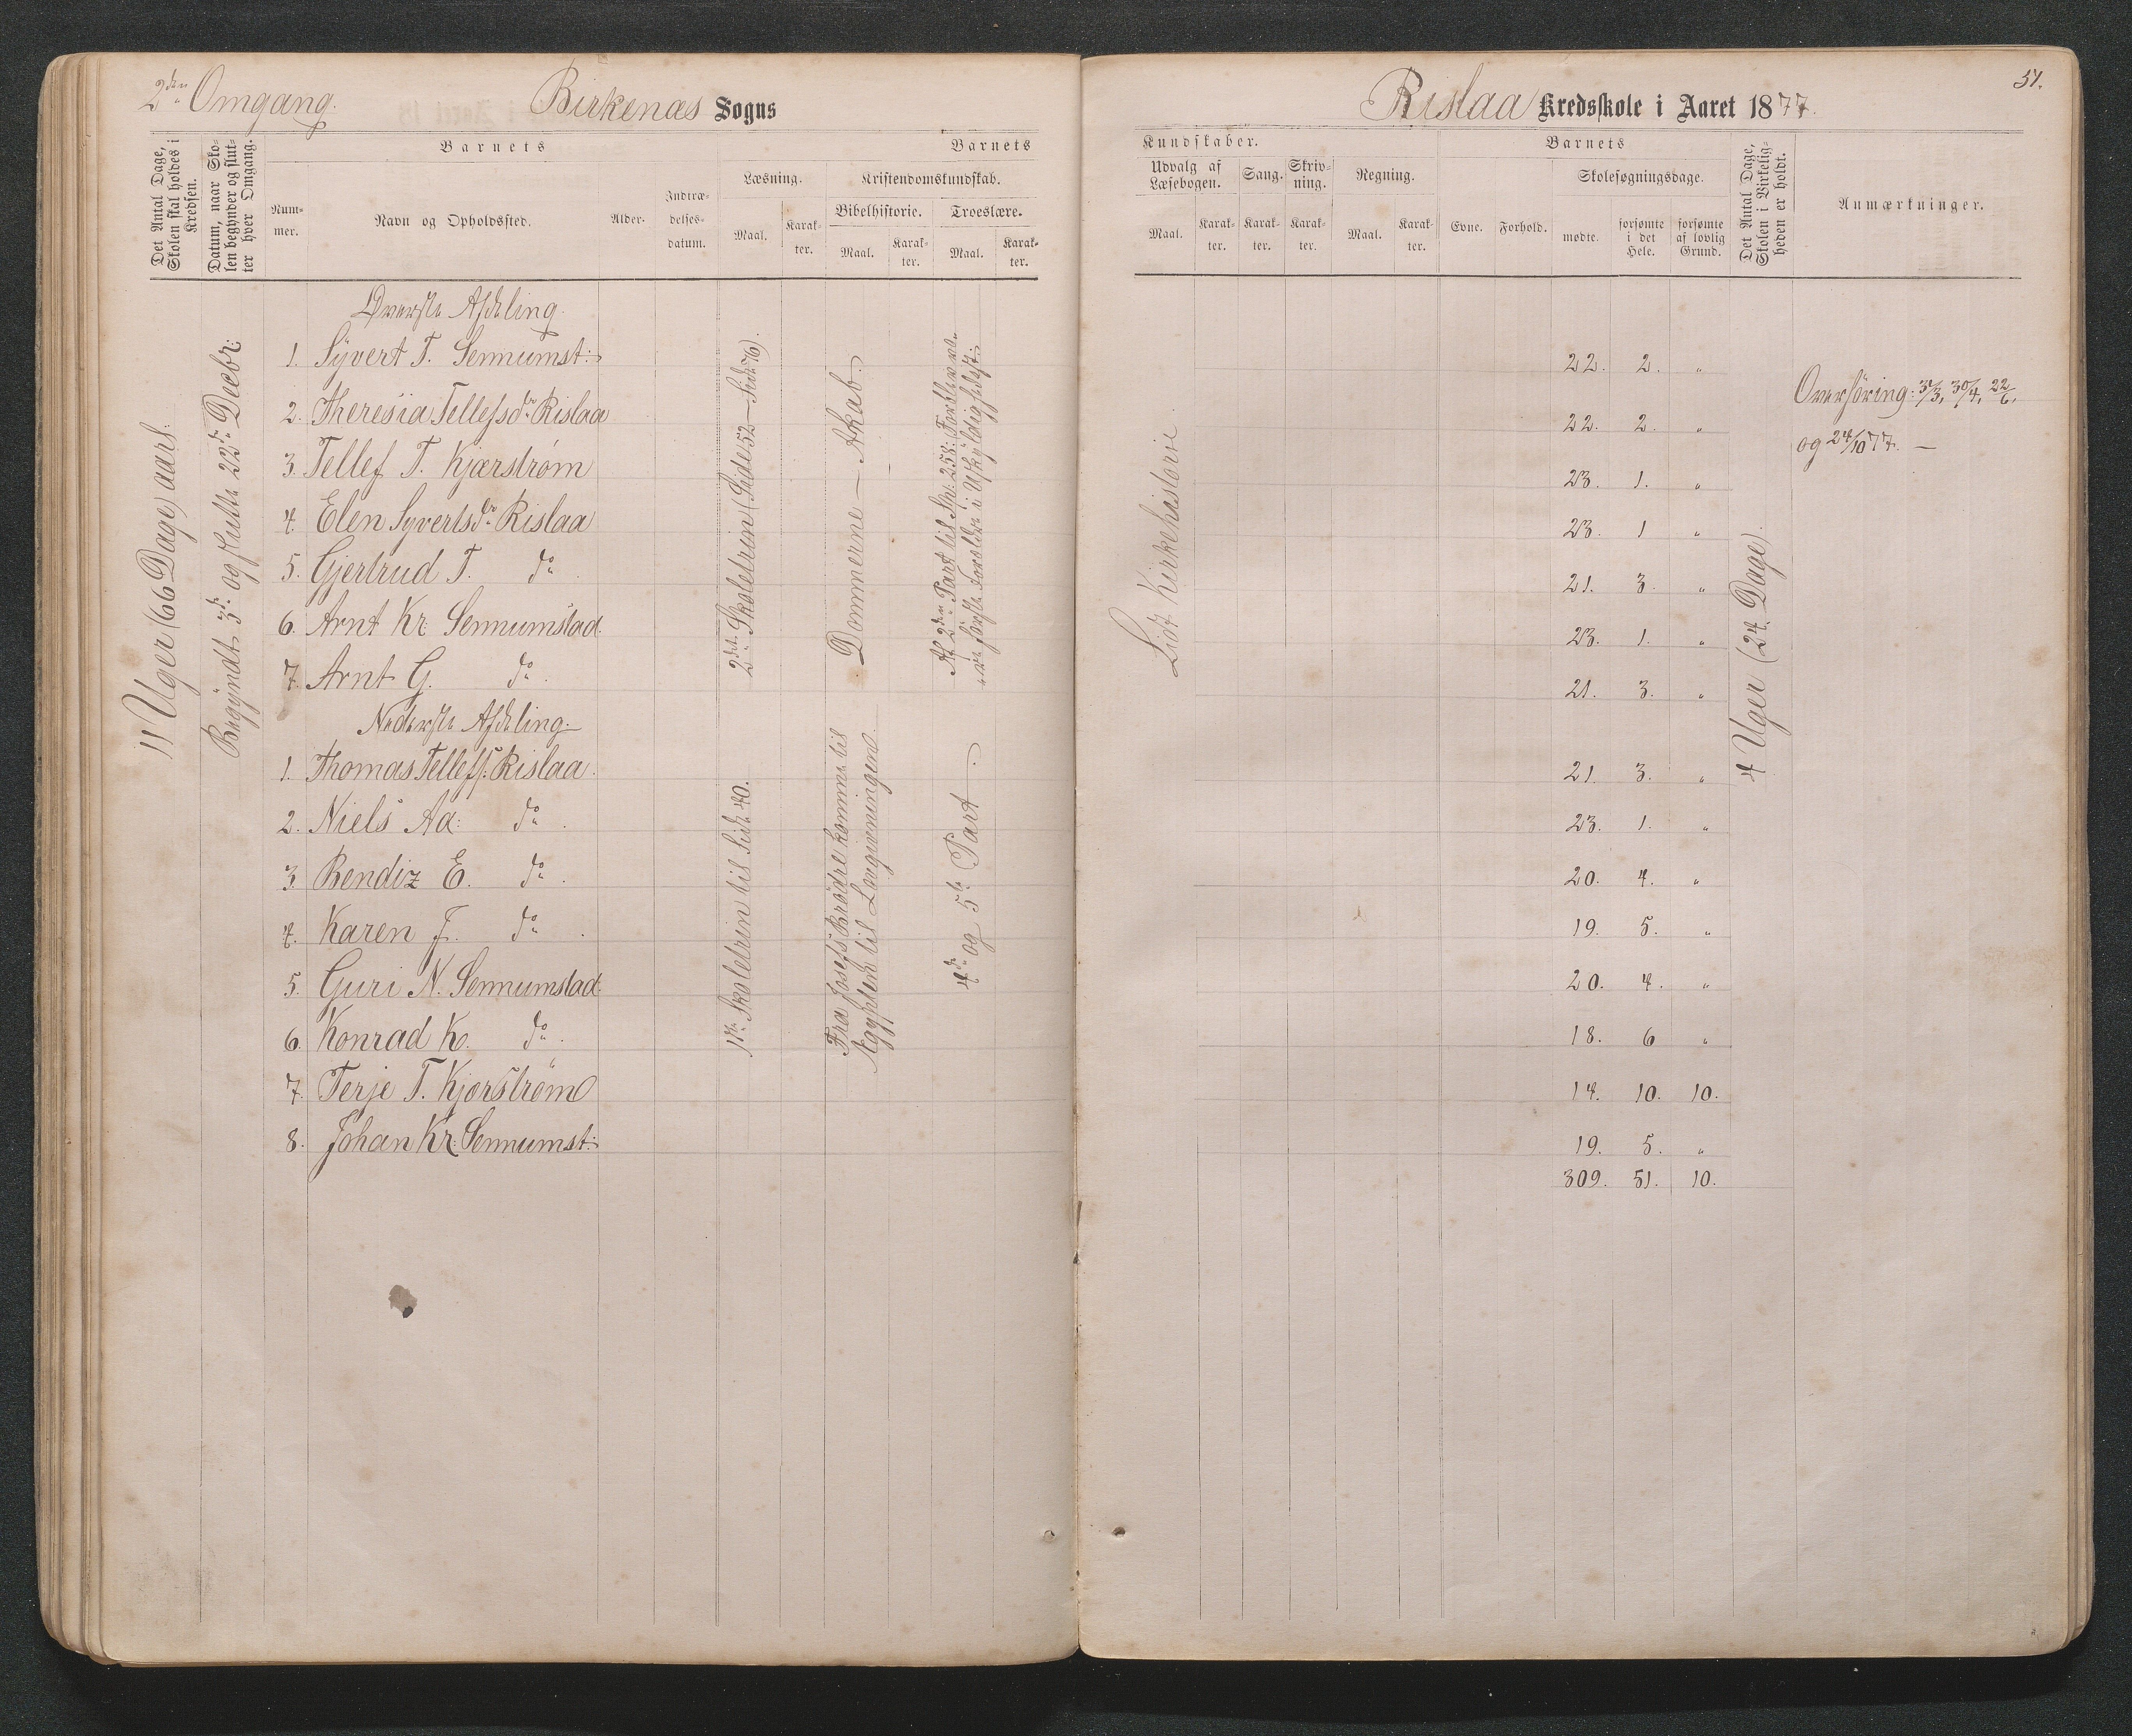 2den Omgang.
Birkenæs Sogns
Det Antal Dage, Skolen skal holdes i Kredsen.
Datum, naar Skolen begynder og slutter hver Omgang.
Barnets
Barnets
Nummer.
Navn og Opholdssted.
Alder.
Indtrædelsesdatum.
Læsning.
Kristendomskundskab.
Bibelhistorie.
Troeslære.
Maal.
Karakter.
Maal.
Karakter.
Maal.
Karakter.
11 Uger (66 Dage) aarl.
Begyndt 3de og sluttet 22de Decbr:
Øverste Afdeling.
1. Syvert T. Sennumst:
2. Theresia Tellefsdr Rislaa
3. Tellef T. Kjærstrøm
4. Elen Syvertsdr Rislaa
5. Gjertrud T. do
6. Arnt Kr. Sennumstad.
7. Arnt G. do
Nederste Afdeling.
1. Thomas Tellefs: Rislaa.
2. Niels Aa: do
3. Bendix E. do
4. Karen J. do
5. Guri N. Sennumstad.
6. Konrad K. do
7. Terje T. Kjærstrøm
8. Johan Kr. Sennumst:
2det Skoletrin (Side 52–Side 76).
1ste Skoletrin til Side 40.
Dommerne — Akab.
Fra Josefs Brødre komme til
Ægypten til Lovgivningen.
Af 2den Part til Sp: 258: (Forbleve vore første Forældre i Uskyldighedsst:
4de og 5te Part.
51.
Rislaa Kredsskole i Aaret 1877.
Kundskaber.
Barnets
Udvalg af Læsebogen.
Sang.
Skrivning.
Regning.
Skolesøgningsdage.
Maal.
Karakter.
Karakter.
Karakter.
Maal.
Karakter.
Evne.
Forhold.
mødte.
forsømte i det Hele.
forsømte af lovlig Grund.
Det Antal Dage, Skolen i Virkeligheden er holdt.
Anmærkninger.
Lidt Kirkehistorie
22. 2. "
22. 2. "
23. 1. "
23. 1 "
21. 3. "
23. 1. "
21. 3. "
21. 3. "
23. 1. "
20. 4. "
19. 5. "
20. 4. "
18. 6 "
14. 10. 10.
19. 5. "
309. 51. 10.
4 Uger (24 Dage).
Overhøring: 3/3, 30/4, 22/6.
og 24/10 77. —